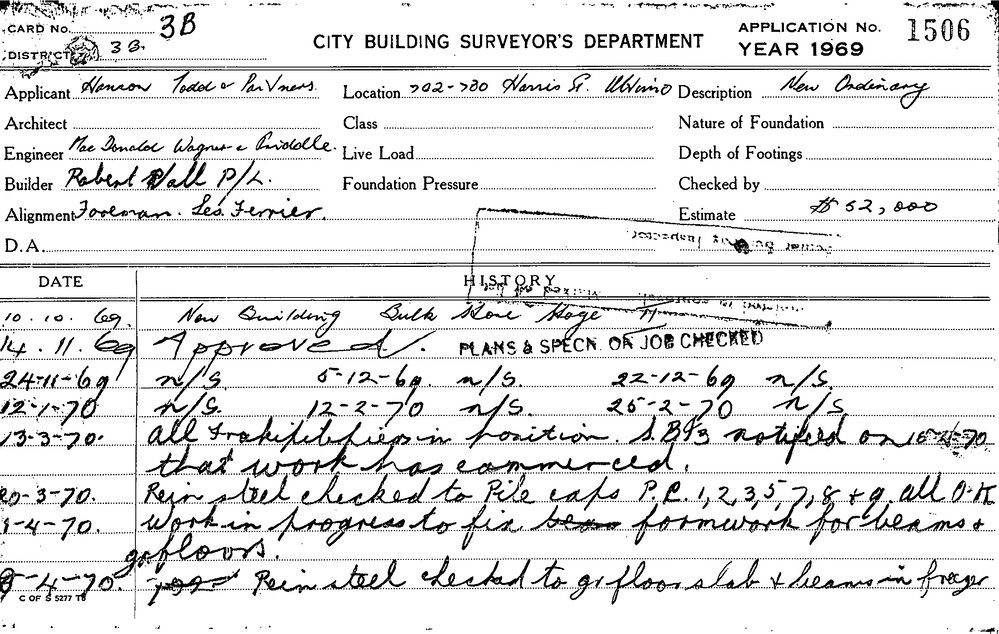 CARD No. 3B
DISTRICT 3B.
CITY BUILDING SURVEYOR'S DEPARTMENT
APPLICATION No. 1506
YEAR 1969
Applicant Hanson Todd & Partners.
Location 702-730 Harris St. Ultimo
Description New Ordinary
Architect
Class
Nature of Foundation
Engineer MacDonald Wagner & Priddle.
Live Load
Depth of Footings
Builder Robert Wall P/L.
Foundation Pressure
Checked by
Alignment Foreman. Les. Ferrier.
Estimate $ 52,000
D.A.
DATE HISTORY
10.10.69. New Building Bulk Store Stage II
14.11.69 Approved. PLANS & SPECN. ON JOB CHECKED
24-11-69 n/S. 5-12-69. n/S. 22-12-69 n/S.
12-1-70 n/S. 12-2-70 n/S. 25-2-70 n/S
13-3-70. all in position. notified on
that work has commenced.
20-3-70. Rein steel checked to Pile caps P.C. 1,2,3,5 7,8 & 9. all O.K
1-4-70. Work in progress to fix formwork for beams &
gr floors.
8-4-70. Rein steel checked to gr floor slab & beams in
C OF S 5277 TB